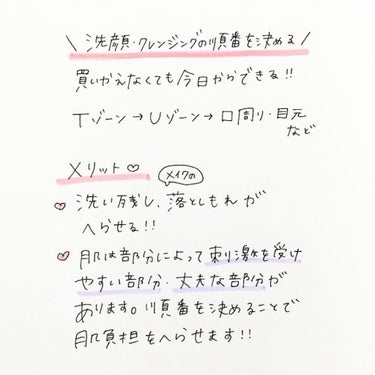 \ 洗顔・クレンジングの順番を決める /
買いかえなくても今日からできる!!
Tゾーン→Uゾーン→口周り・目元
など
メリット♡
メイクの
♡ 洗い残し、落としもれが
へらせる!!
♡ 肌は部分によって刺激を受け
やすい部分・丈夫な部分が
あります。順番を決めることで
肌負担をへらせます!!